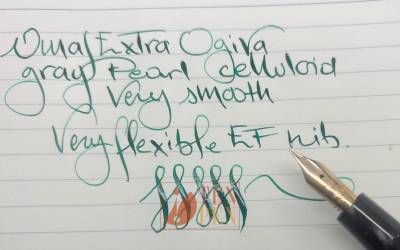 Omas Extra Ogiva
gray Pearl celluloid
Very smooth
Very flexible EF nib.